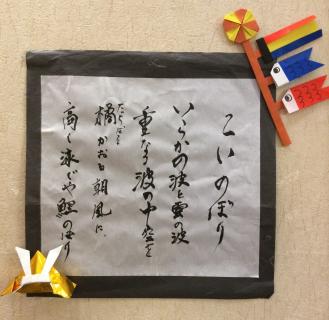 こいのぼり
いらかの波と雲の波
重なる波の中空を
橘かおる朝風に、
たちばな
高く泳ぐや鯉のぼり